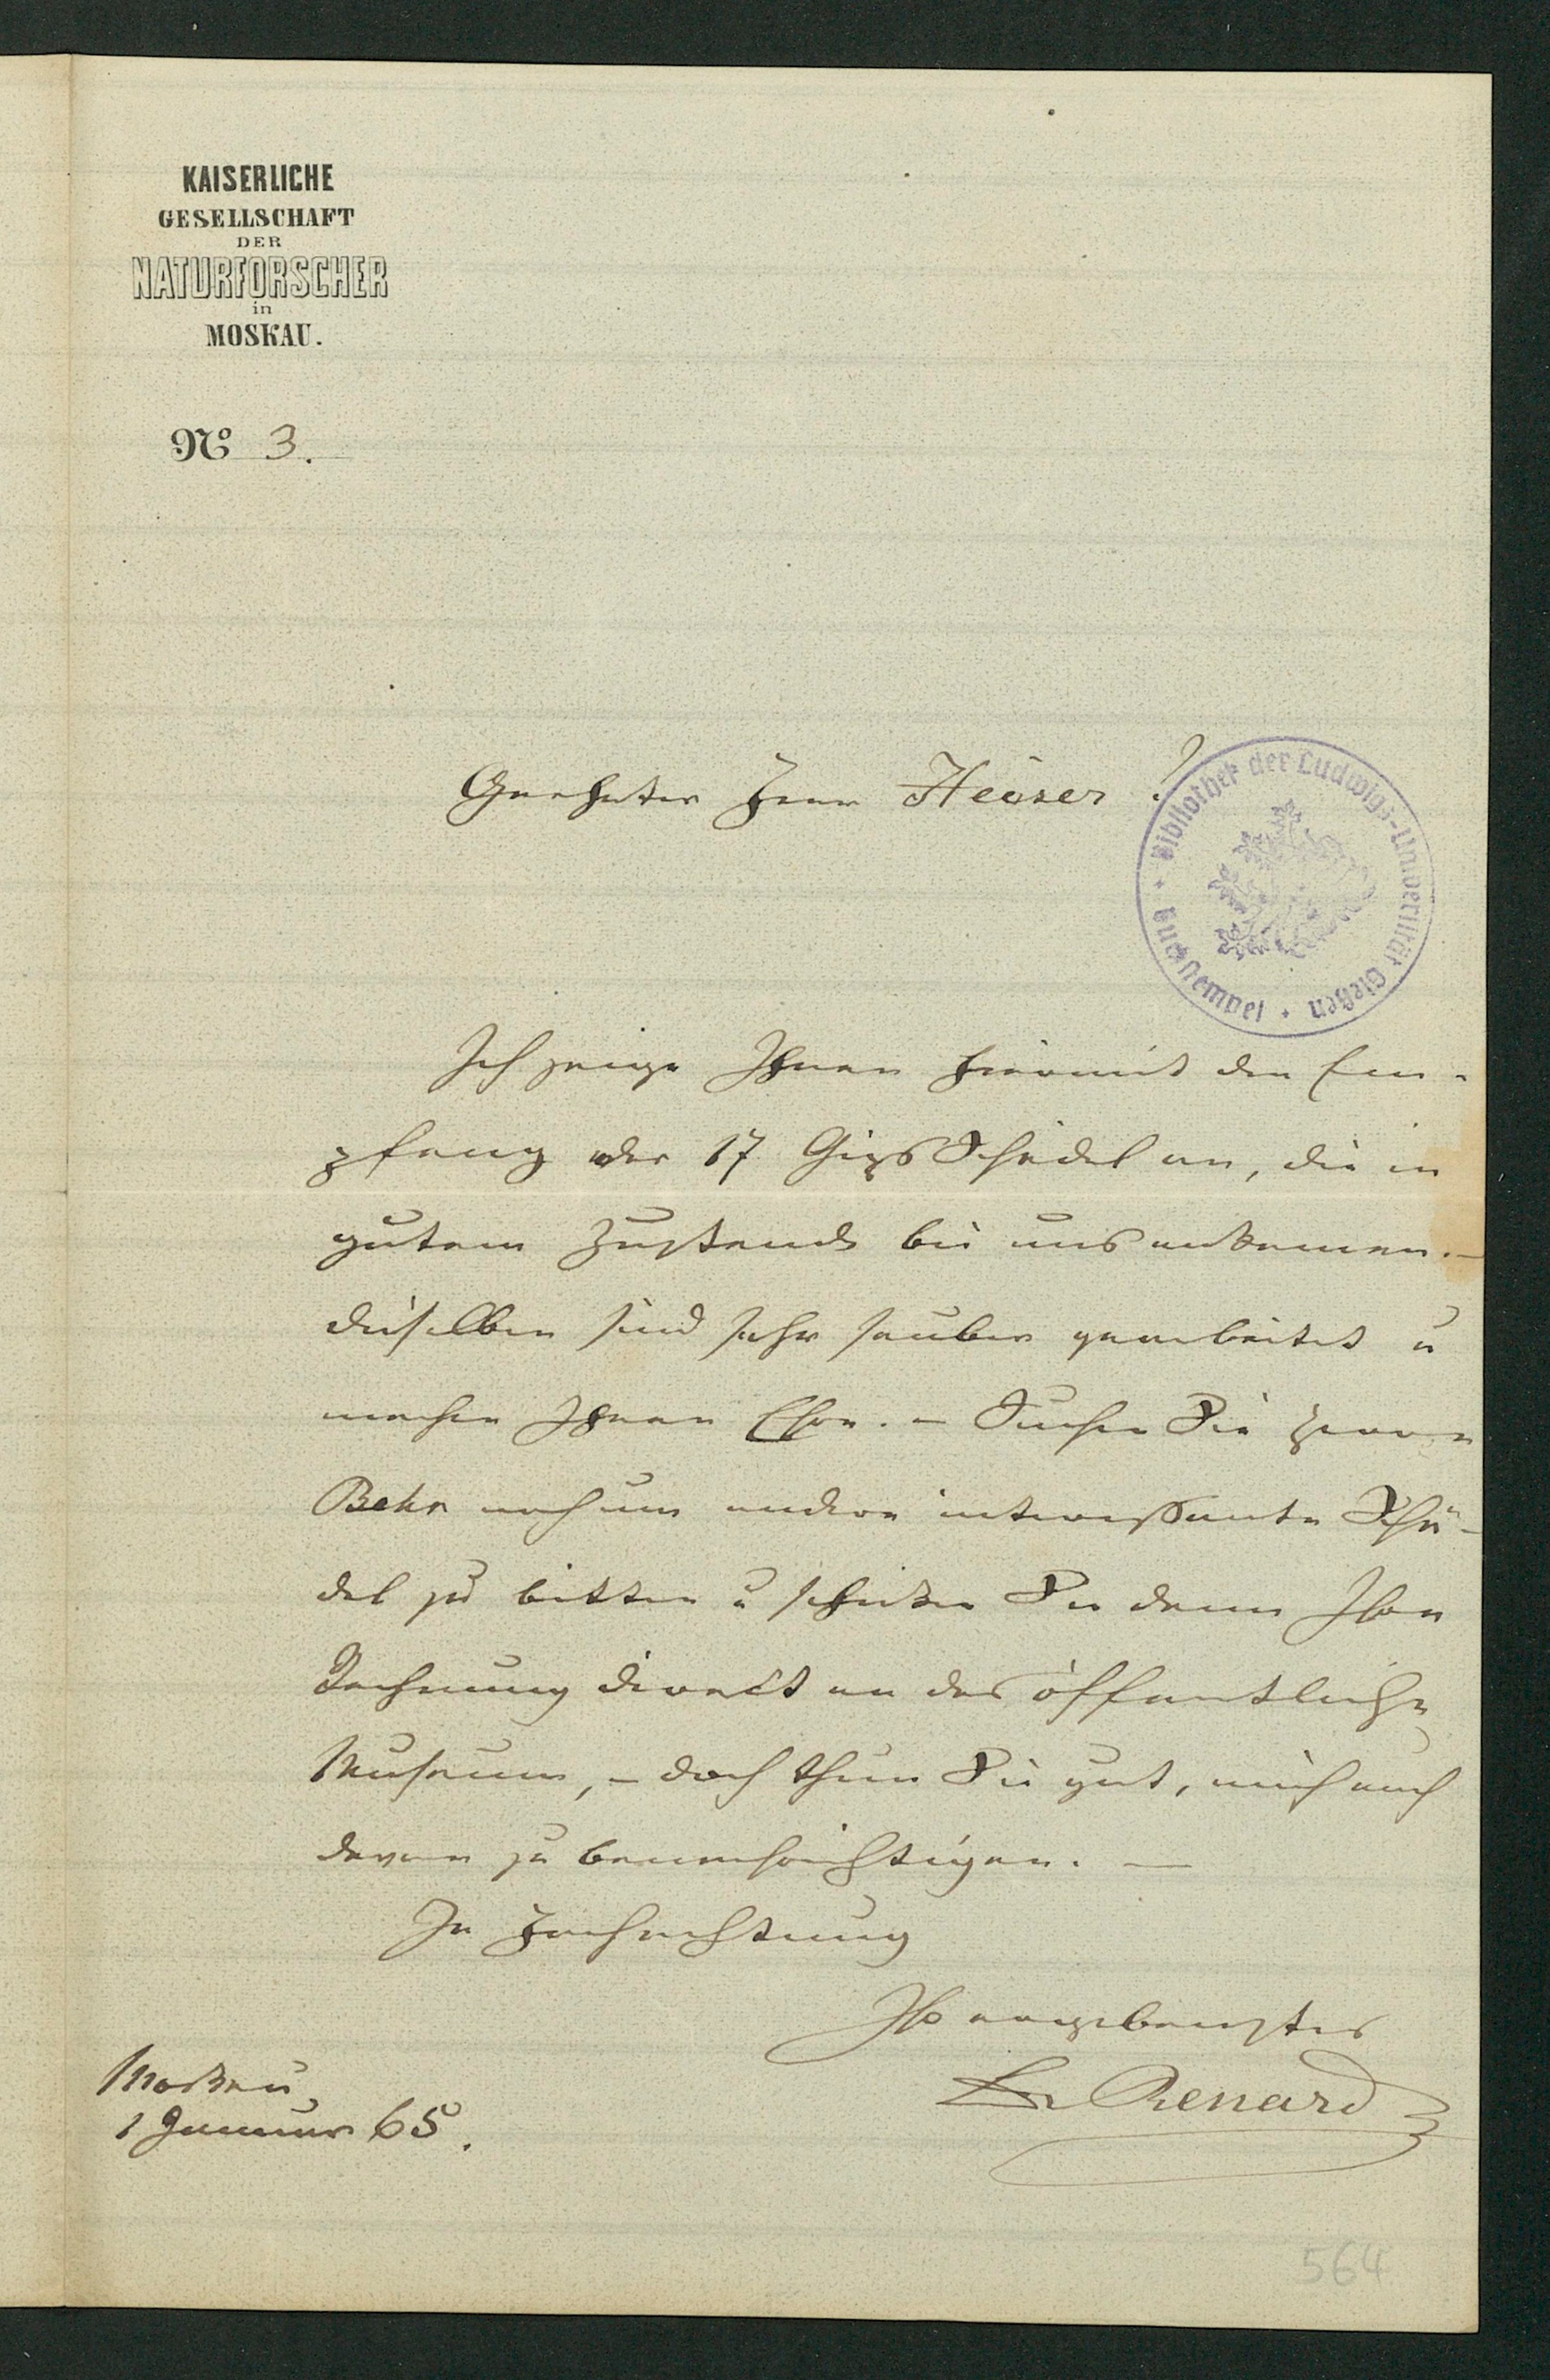 KAISERLICHE
GESELLSCHAFT
DER
NATURFORSCHER
in
MOSKAU.
No 3.
Geehrter Herr Heuser!
Bibliothek der Ludwigs-Universität Gießen
Buchstempel
Ich zeige Ihnen hiermit den Em-
pfang der 17 Gips Schädel an, die in
gutem Zustande bei uns ankamen. –
dieselben sind sehr sauber gearbeitet u
machen Ihnen Ehre. – Suchen Sie Herrn
Behr noch um andere interessante Schä-
del zu bitten u schicken Sie dann Ihre
Rechnung direct an das öffentliche
Museum, – doch thun Sie gut, mich auch
davon zu benachrichtigen. —
In Hochachtung
Ihr ergebenster
Dr Renard
Moskau
1 Januar 65.
564